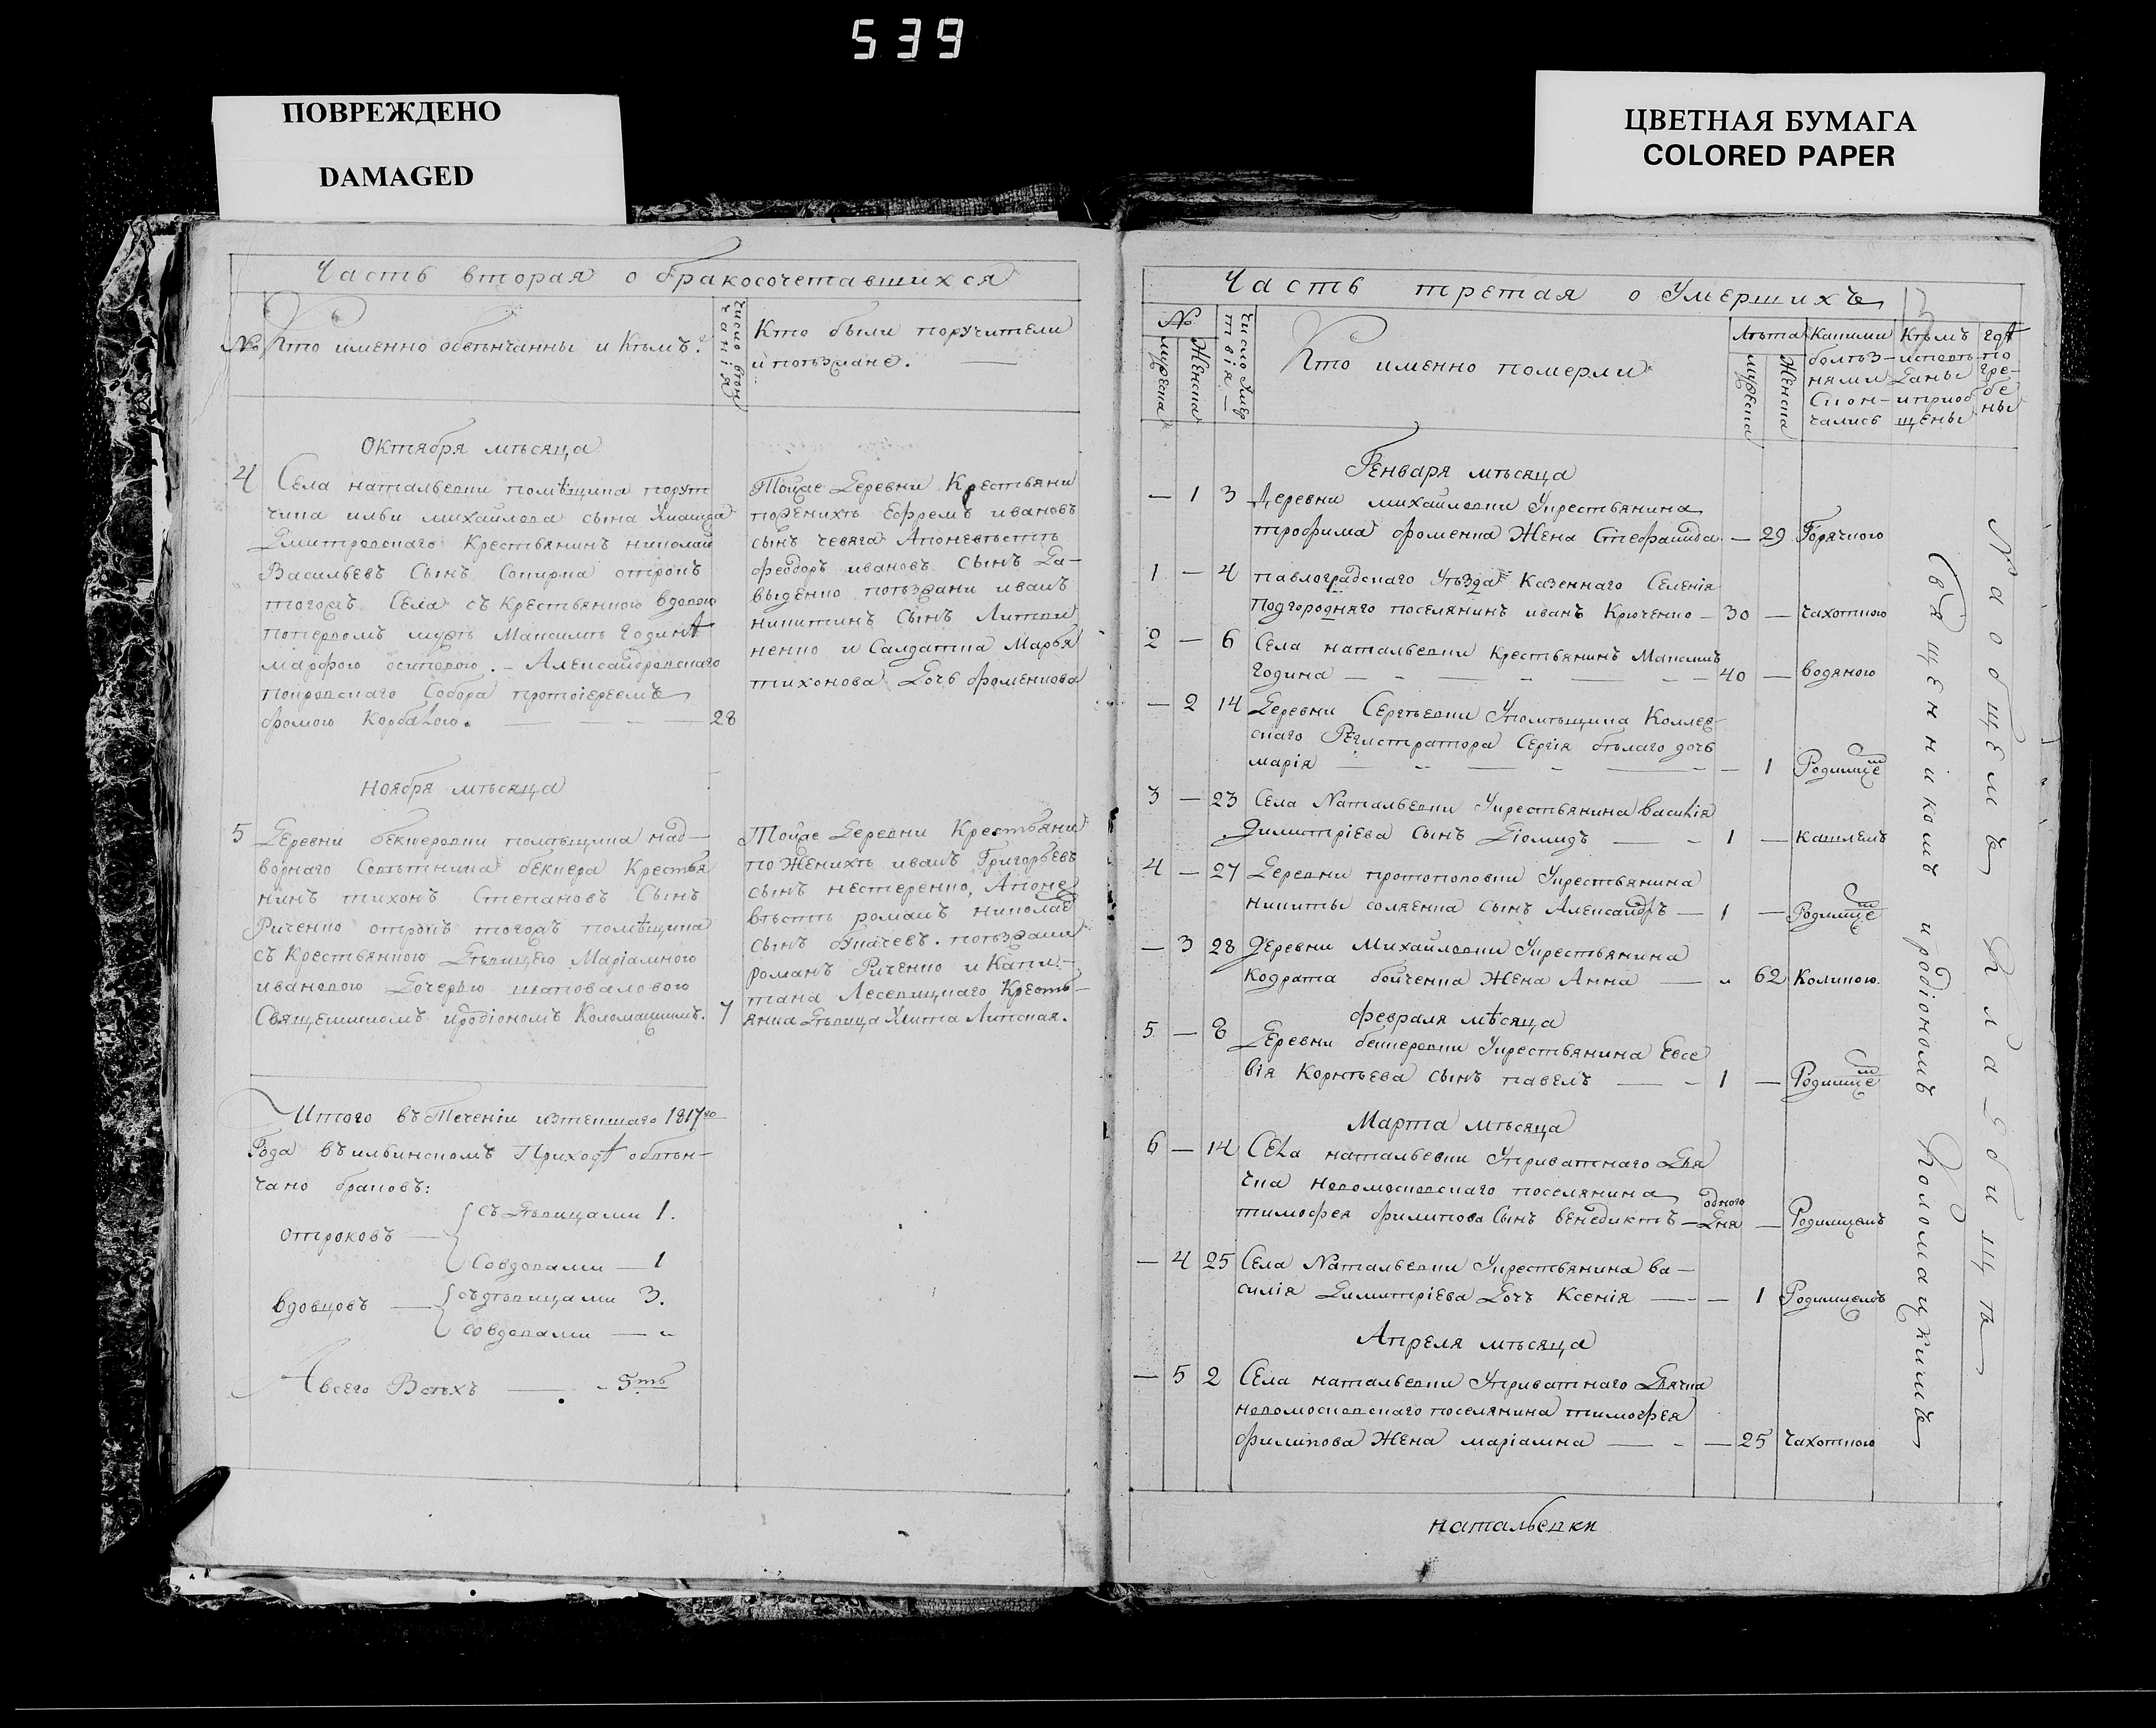 539
ПОВРЕЖДЕНО
DAMAGED
ЦВЕТНАЯ БУМАГА
COLORED PAPER
Часть вторая о бракосочетавшихся
№
Кто именно обвѣнчанны и Кѣмъ?
Число вѣн
чанія
Кто были поручители
и поѣзжане.
Октября мѣсяца
4
Села натальевки помѣщика порут
чика ильи михайлова сына Князя
Димитровскаго Крестьянинъ николай
Васильевъ Сынъ отрокъ
тогожъ Села съ Крестьянкою вдовою
попервомъ мужѣ Максимѣ Годинѣ
марфою осиповою. — Александровскаго
покровскаго Собора протоіереемъ
фомою Корбаhою. — 28
Тойже Деревни Крестьяни
поженихѣ Ефремъ ивановъ
сынъ чевяга Апоневѣстѣ
феодоръ ивановъ Сынъ Да-
выденко поѣзжани иванъ
никитинъ Сынъ Литви
ненко и Салдатка Марья
тихонова Дочь фоменкова
Ноября мѣсяца
5
Деревни бекеревки помѣщика над-
ворнаго Совѣтника бекера Крестья
нинъ тихонъ Степановъ Сынъ
Риченко отрокъ тогожъ помѣщика
съ Крестьянкою Дѣвицею Маріамною
ивановою Дочерью шаповаловою
Священникомъ иродіономъ Коломацкимъ. 7
Тойже Деревни Крестьяни
по Женихѣ иванъ Григорьевъ
сынъ нестеренко, Апоне
вѣстѣ романъ николаев
сынъ поѣзжани
романъ Риченко и Капи-
тана Лесевицкаго Кресть-
янка Дѣвица Липская.
Итого въ Теченіи изтекшаго 1817го
Года въ ильинскомъ Приходѣ обвѣн-
чано браковъ:
отроковъ —
съ Дѣвицами 1.
Совдовами — 1
вдовцовъ —
съ дѣвицами 3.
совдовами — „
А всего Всѣхъ — 5ть
Часть третая о Умершихъ
13
№
мужеска
Женска
Число Умер
твія —
Кто именно померли
Лѣта
мужеска
Женска
Какими
болѣз-
нями
Скон-
чались
Кѣмъ
исповѣ-
даны
и приоб
щены
гдѣ
по
гре-
бе
ны
Генваря мѣсяца
— 1 3 Деревни михайловки Укрестьянина
трофима фоменка Жена Стефанида — 29 Горячкою
1 — 4 павлоградскаго Уѣзда Казеннаго Селенія
подгородняго поселянинъ иванъ Крюченко — 30 — чахоткою
2 — 6 Села натальевки крестьянинъ Максимъ
Година — 40 — водяною
— 2 14 Деревни Сергѣевки Упомѣщика Коллеж-
скаго Регистратора Сергія бѣлаго дочь
марія — 1 Родимце
3 — 23 Села Натальевки Укрестьянина василія
Димитріева сынъ Діомидъ — 1 — кашлемъ
4 — 27 Деревни протопоповки Укрестьянина
никиты соляенка сынъ Александръ — 1 — Родимце
— 3 28 Деревни Михайловки Укрестьянина
кодрата бойченка Жена Анна — „ 62 Коликою.
февраля мѣсяца
5 — 8 Деревни бекеревки Укрестьянина Евсе
вія Корнѣева сынъ павелъ — 1 — Родимце
Марта мѣсяца
6 — 14 Села натальевки Уприватнаго Дья
чка новомосковскаго поселянина
тимофея филипова Сынъ венедиктъ — одного дня — Родимцемъ
— 4 25 Села Натальевки Укрестьянина ва-
силія Димитріева Дочь Ксенія — 1 Родимцемъ
Апреля мѣсяца
— 5 2 Села натальевки Уприватнаго Дьячка
новомосковскаго поселянина тимофея
филипова Жена маріамна — 25 чахоткою
Священникомъ иродіономъ Коломацкимъ
На общемъ Кладбищѣ
натальевки